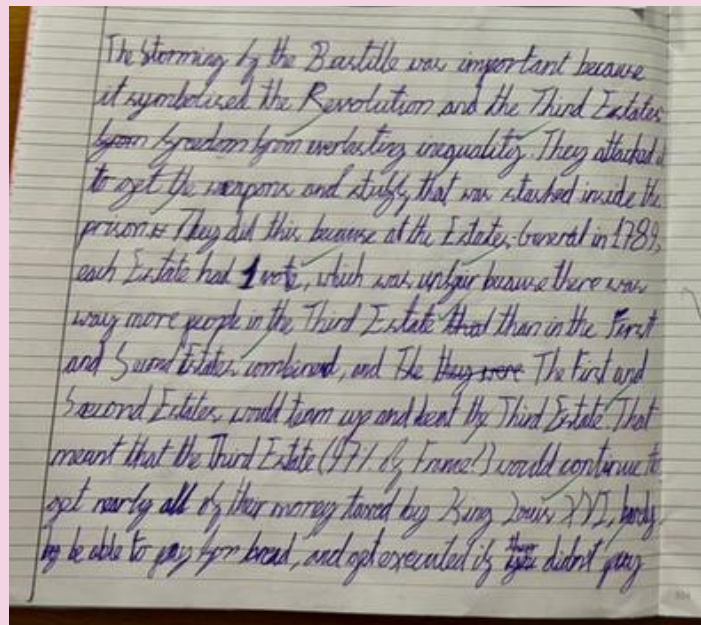 The Storming of the Bastille was important because
it symbolised the Revolution and the Third Estates
from freedom from everlasting inequality. They attacked it
to get the weapons and stuff, that was stashed inside the
prison. They did this because at the Estates-General in 1789,
each Estate had 1 vote, which was unfair because there was
way more people in the Third Estate that than in the First
and Second Estates combined, and The they were The First and
Second Estates would team up and beat the Third Estate. That
meant that the Third Estate (97% of France!) would continue to
get nearly all of their money taxed by King Louis XVI,
be able to pay for bread, and get executed if they didn't pay